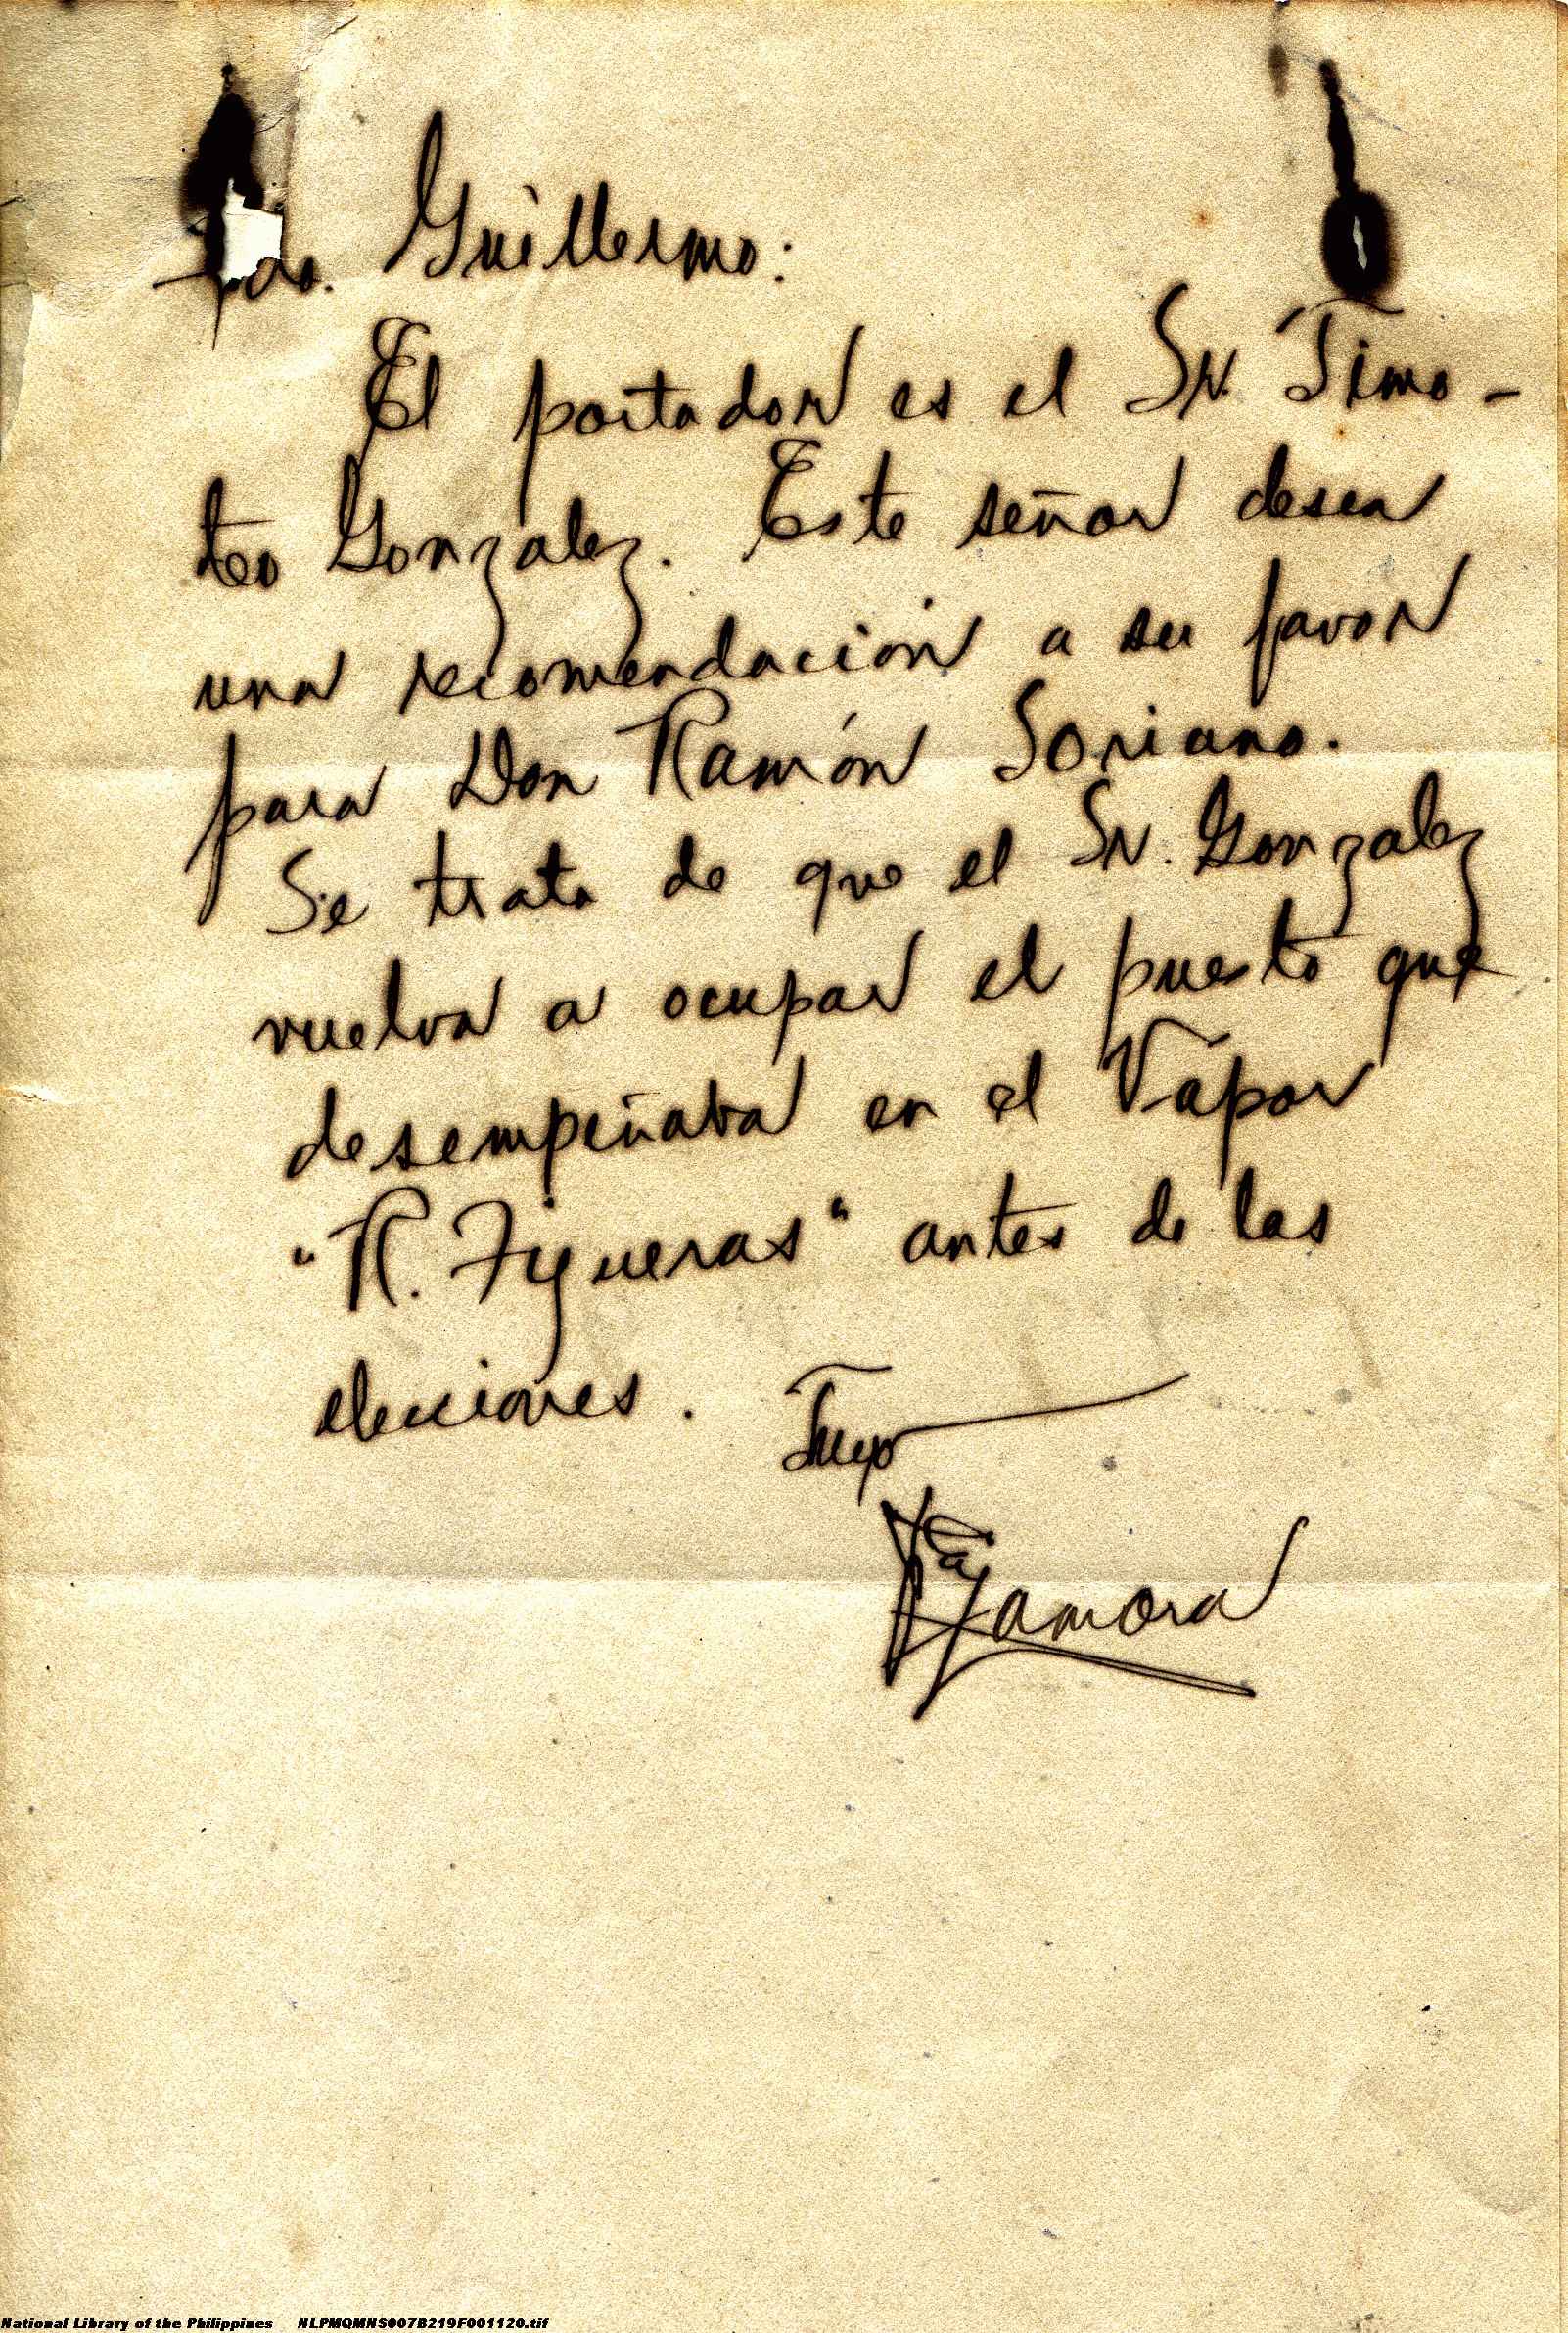 Guillermo:
El portador es el Sr. Timo-
teo Gonzalez. Este señor desea
una recomendación a su favor
para Don Ramón Soriano.
Se trata de que el Sr. Gonzalez
vuelva a ocupar el puesto que
desempeñaba en el Vapor
"R. Figueras" antes de las
elecciones. Tuyo
Zamora
National Library of the Philippines NLPMQMNS007B219F001120.tif